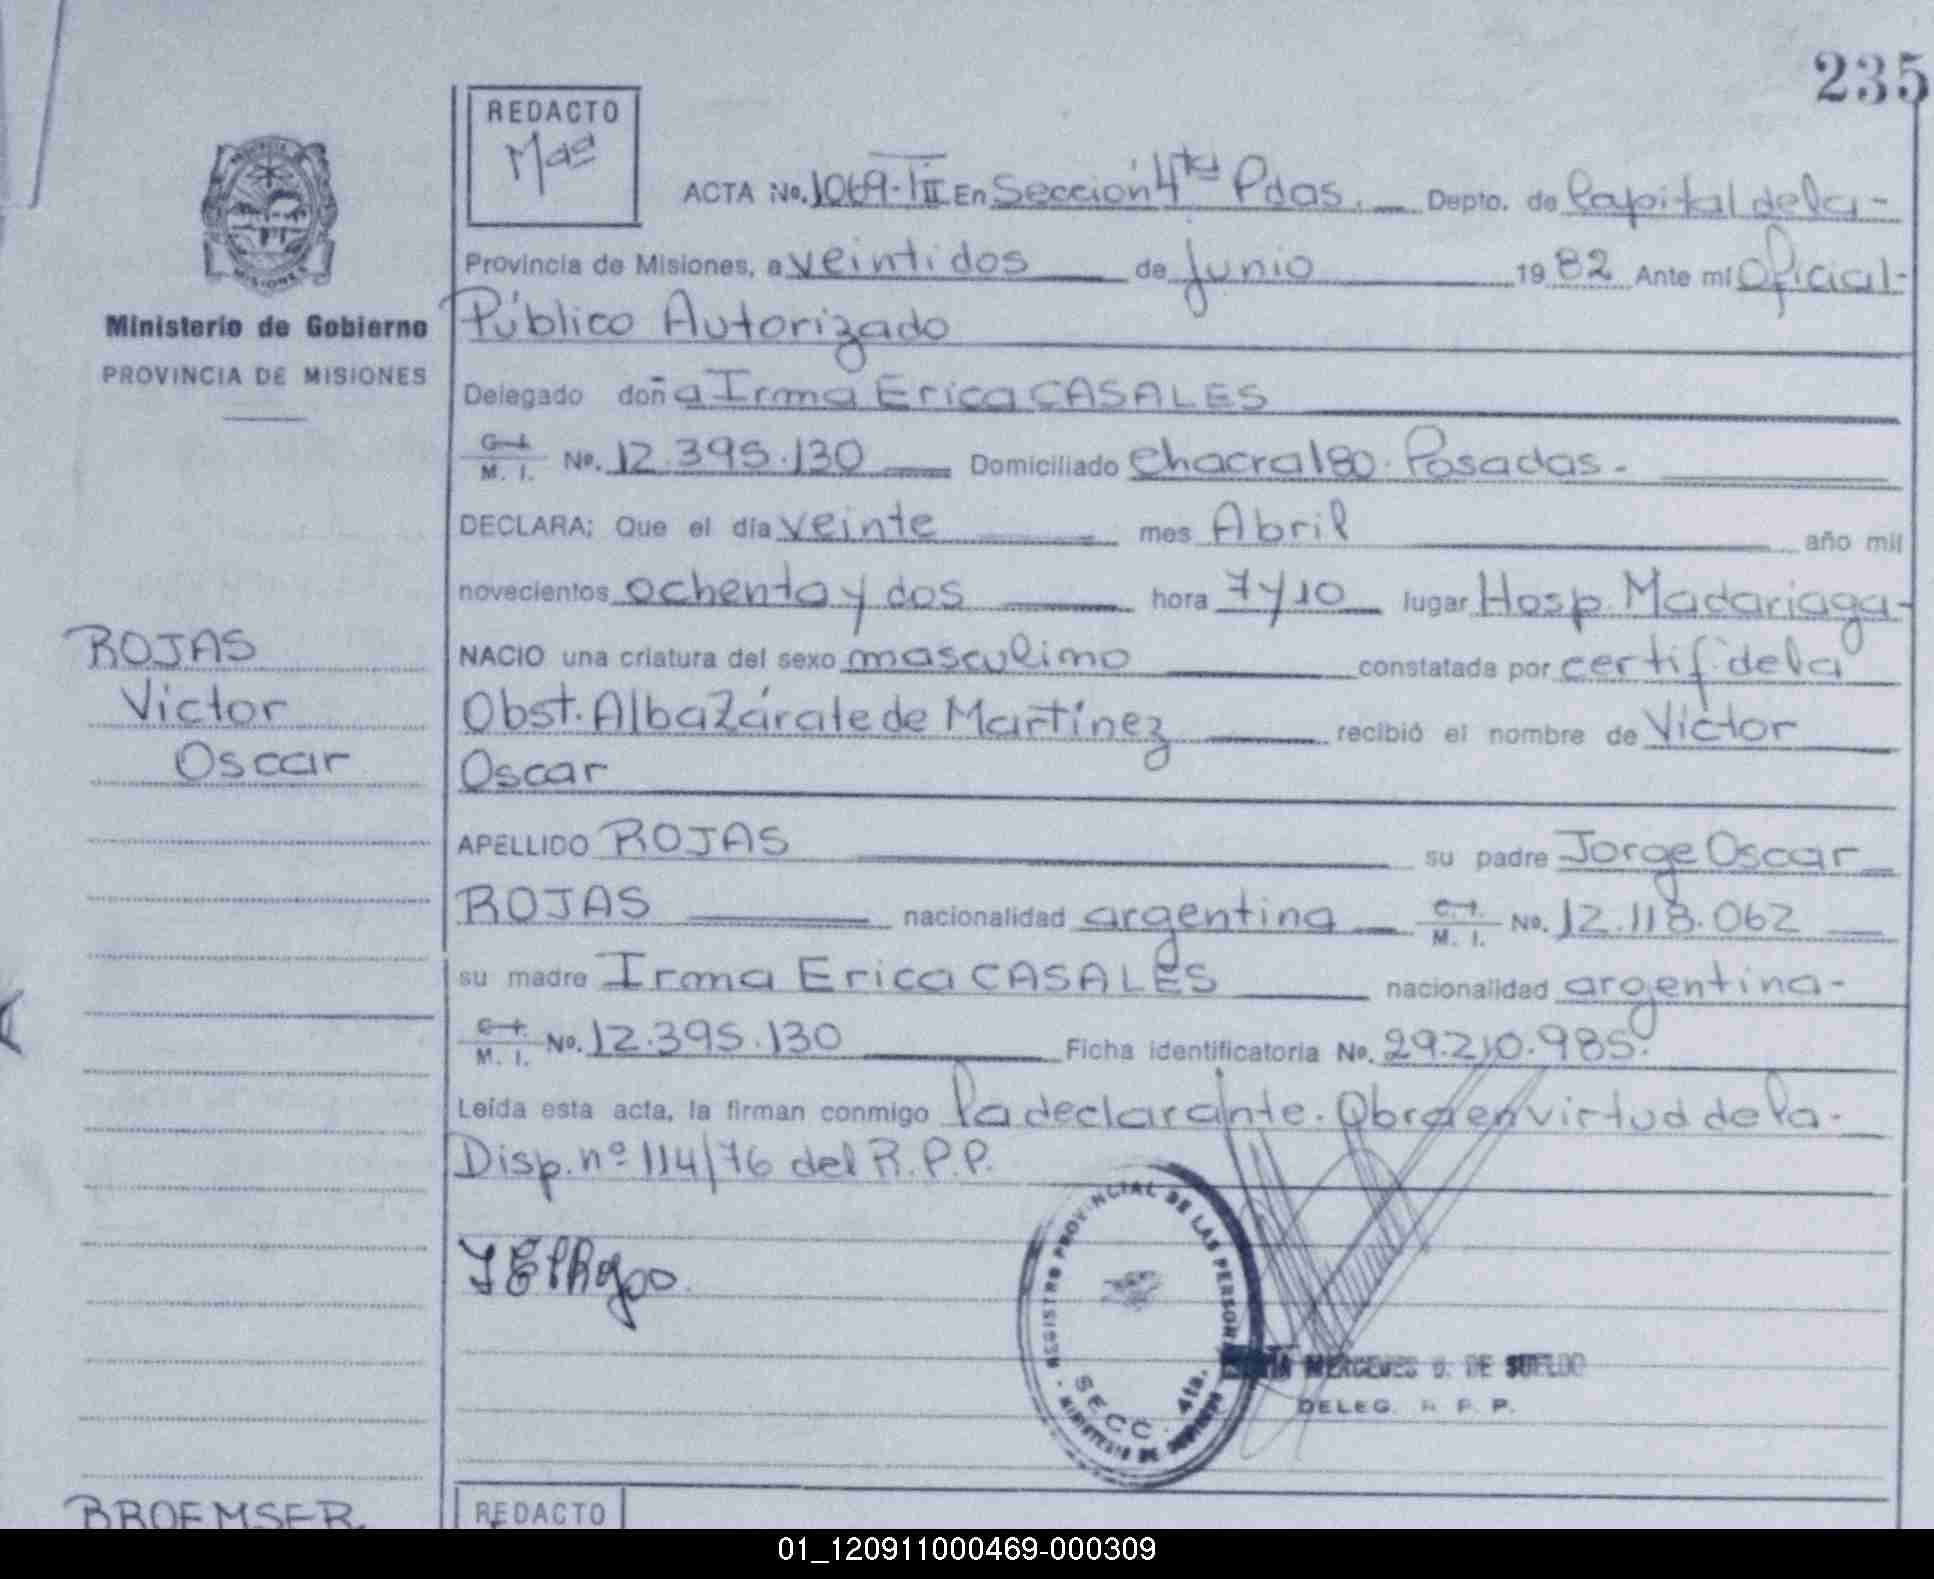 235
REDACTO
Mªª
PROVINCIA
MISIONES
Ministerio de Gobierno
PROVINCIA DE MISIONES
ACTA No. 1069-TII En Sección 4ta Pdas. Depto. de Capital de la-
Provincia de Misiones, a veintidos de junio 1982 Ante mí Oficial-
Público Autorizado
Delegado doña Irma Erica CASALES
C. I. M. I. No. 12.395.130 Domiciliado Chacra 180. Posadas.-
DECLARA; Que el día veinte mes Abril año mil
novecientos ochenta y dos hora 7 y 10 lugar Hosp. Madariaga-
NACIO una criatura del sexo masculino constatada por certif. de la
Obst. Alba Zárate de Martínez recibió el nombre de Víctor
Oscar
APELLIDO ROJAS su padre Jorge Oscar
ROJAS nacionalidad argentina C. I. M. I. No. 12.118.062
su madre Irma Erica CASALES nacionalidad argentina-
C. I. M. I. No. 12.395.130 Ficha identificatoria No. 29.210.985.
Leída esta acta, la firman conmigo la declarante. Obra en virtud de la-
Disp. nº 114/76 del R.P.P.
ROJAS
Victor
Oscar
REGISTRO PROVINCIAL DE LAS PERSONAS
SECC. 4ta.
MINISTERIO DE GOBIERNO
MERCEDES G. DE SUELDO
DELEG. R. P. P.
BROEMSER
REDACTO
01_120911000469-000309